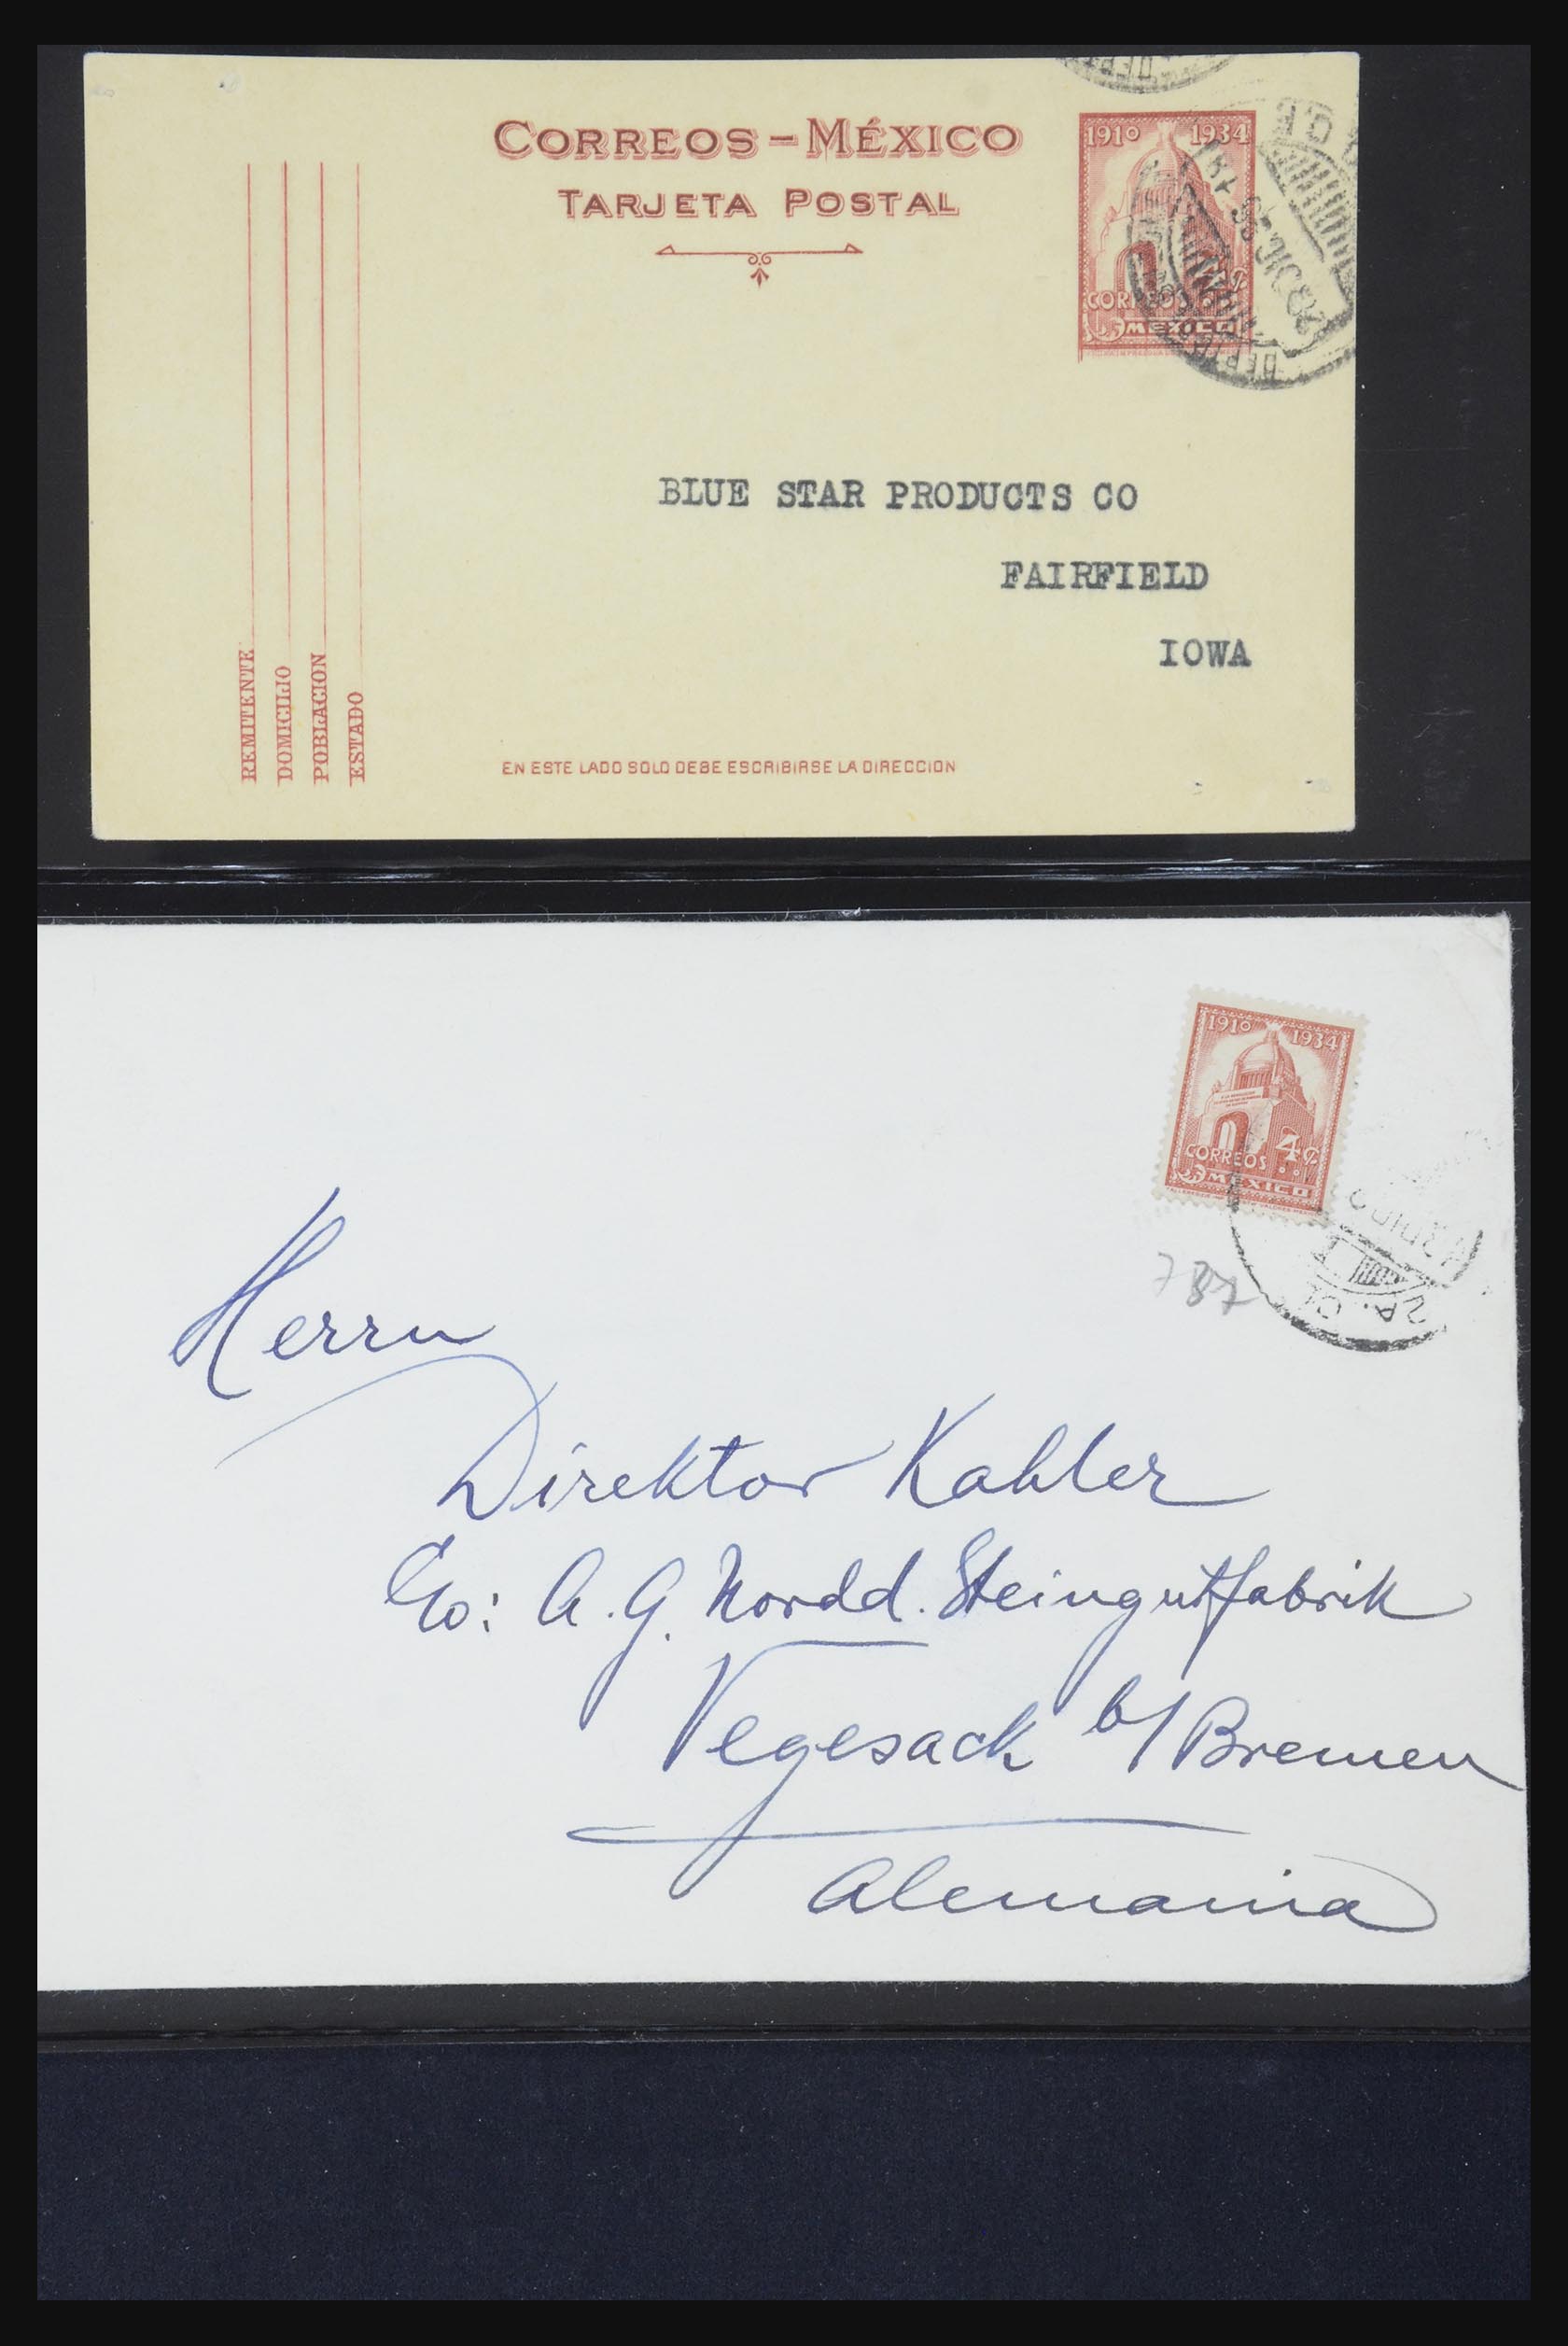 CORREOS-MÉXICO
TARJETA POSTAL
1910 1934
CORREOS
MEXICO
BLUE STAR PRODUCTS CO
FAIRFIELD
IOWA
REMITENTE
DOMICILIO
POBLACION
ESTADO
EN ESTE LADO SOLO DEBE ESCRIBIRSE LA DIRECCION
1910 1934
CORREOS 4¢
MEXICO
787
Herrn
Direktor Kahler
Co: A.G. Nordd. Steingutfabrik
Vegesack b/Bremen
Alemania